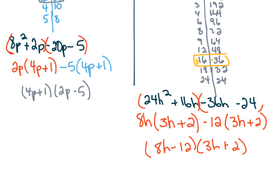 4 10
5 8
(8p² + 2p)(-20p - 5)
2p(4p+1) -5(4p+1)
(4p+1)(2p-5)
3 192
4 144
6 96
8 72
9 64
12 48
16 -36
18 32
24 24
(24h² + 16h)(-36h - 24)
8h(3h+2) -12(3h+2)
(8h-12)(3h+2)